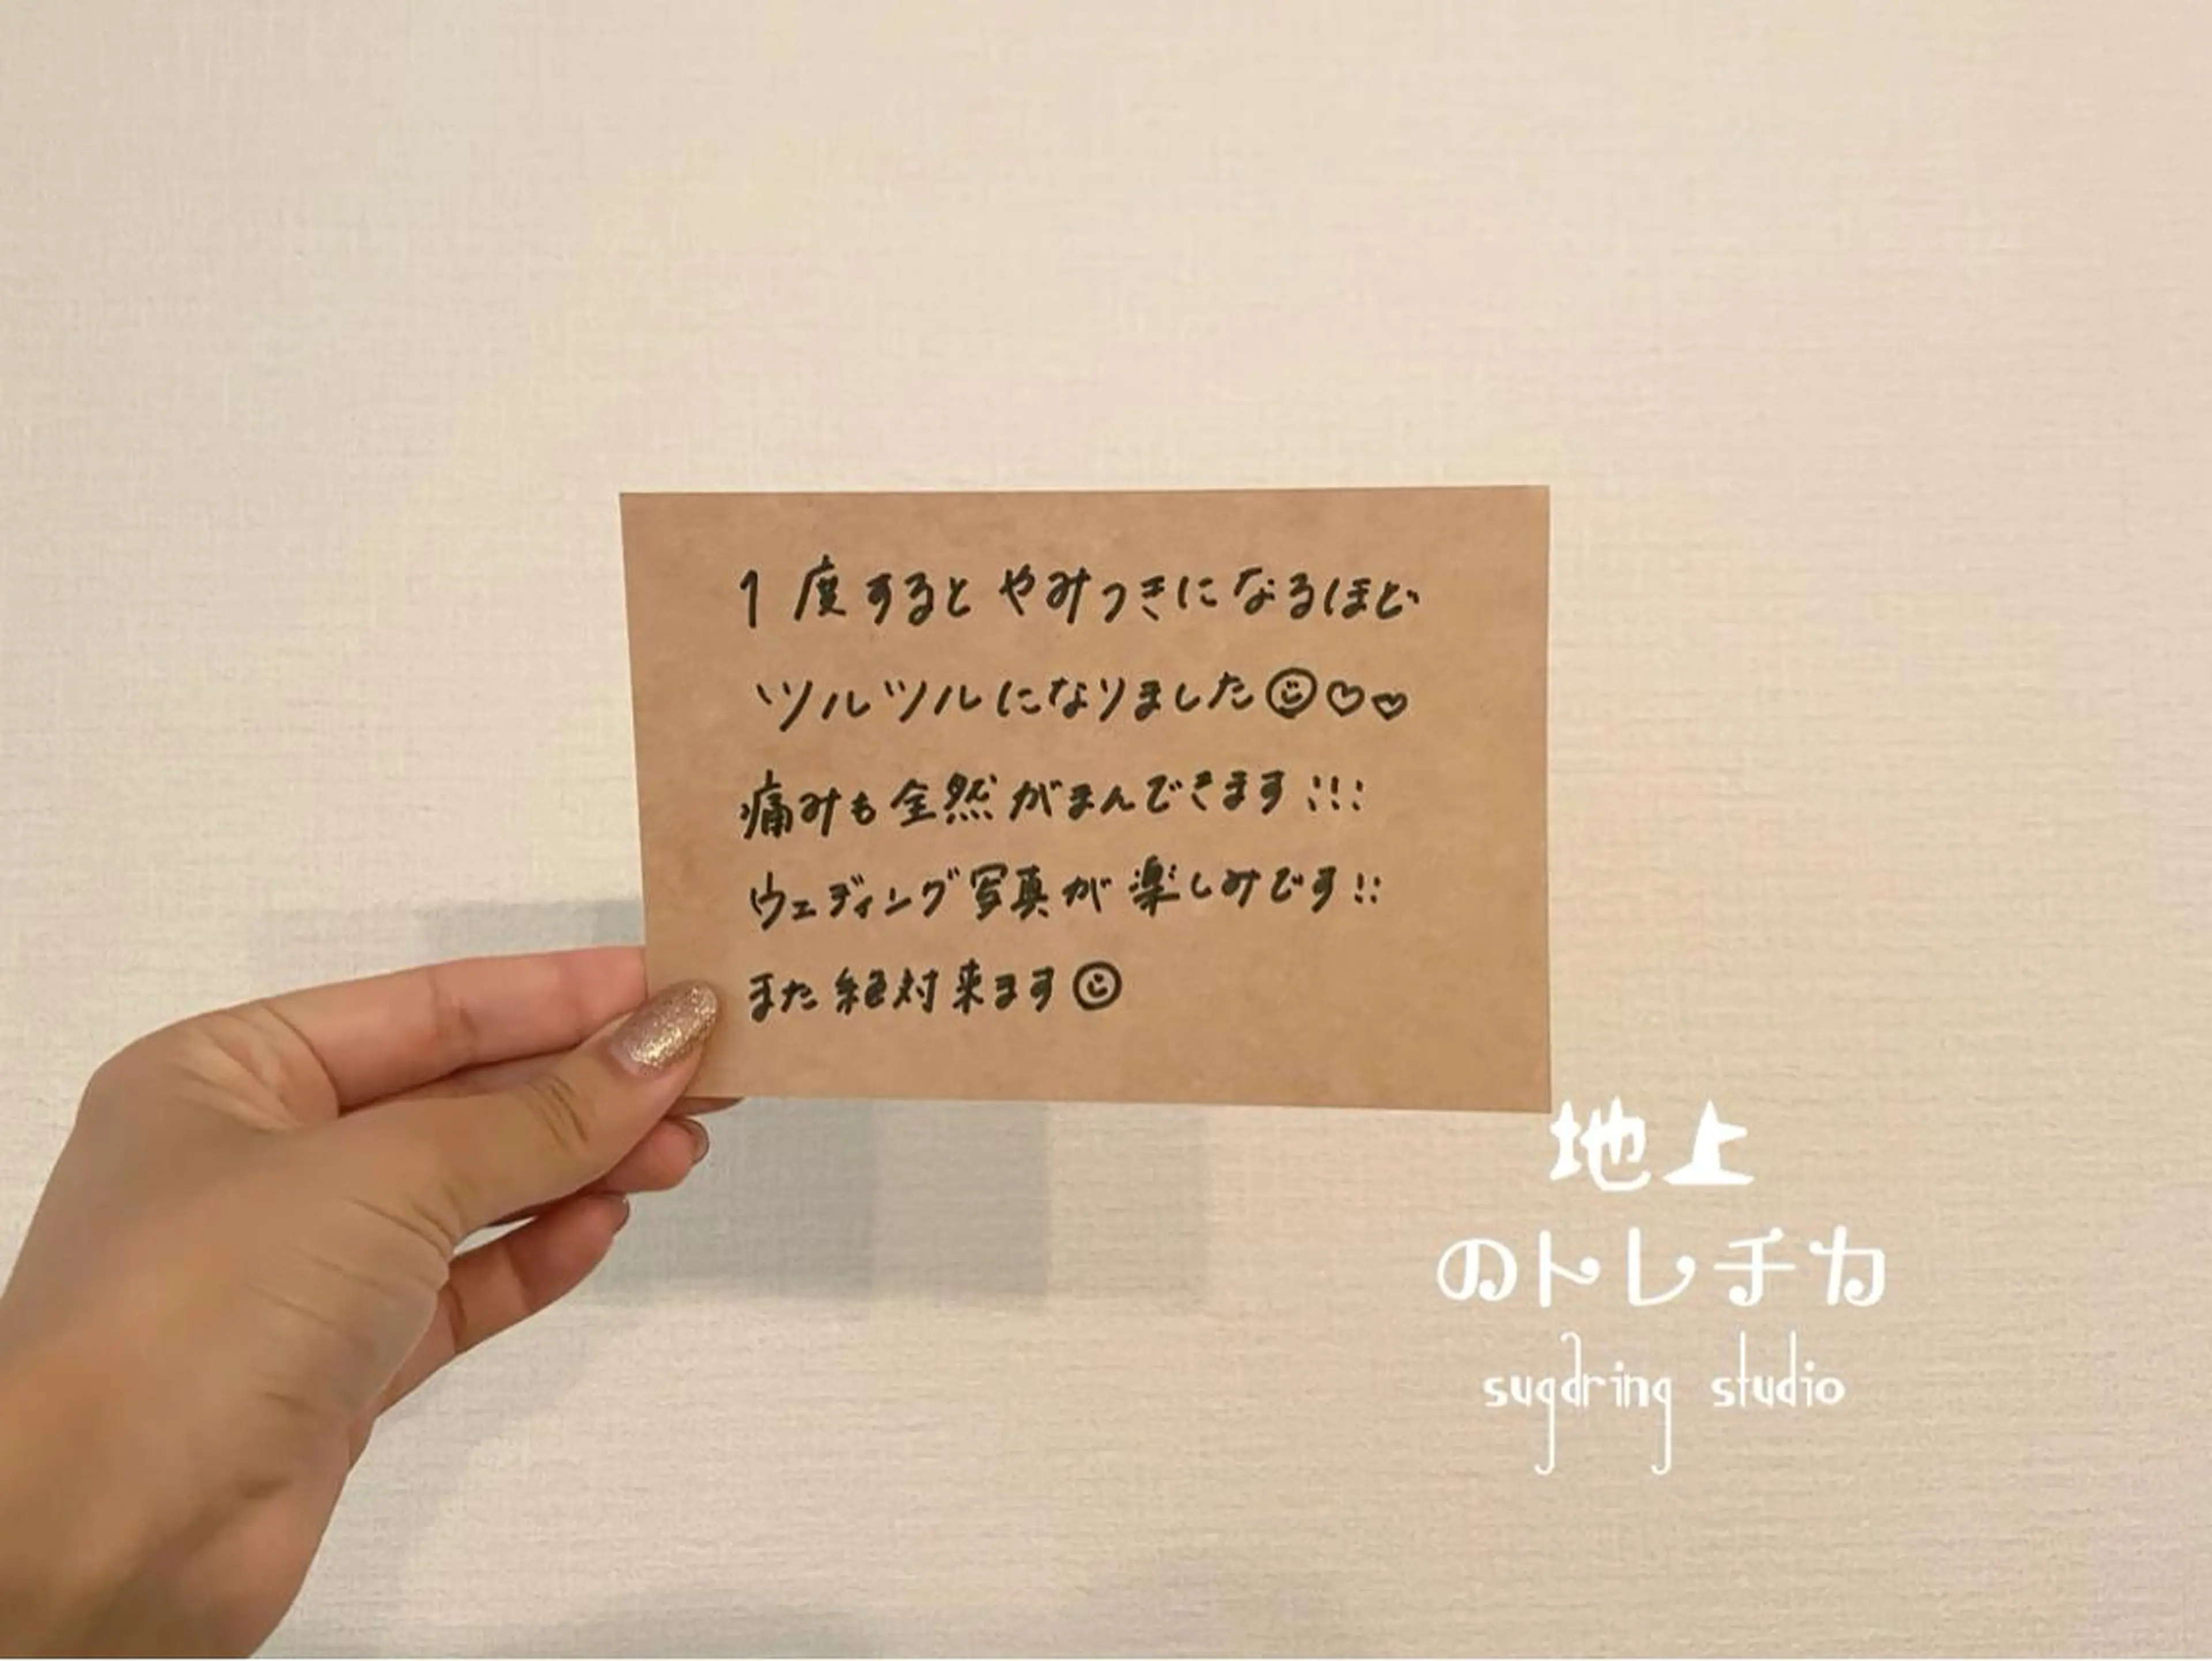 1度するとやみつきになるほど
ツルツルになりました☺♡♡
痛みも全然がまんできます!!!
ウェディング写真が楽しみです!!
また絶対来ます☺
地上
のトレチカ
sugaring studio